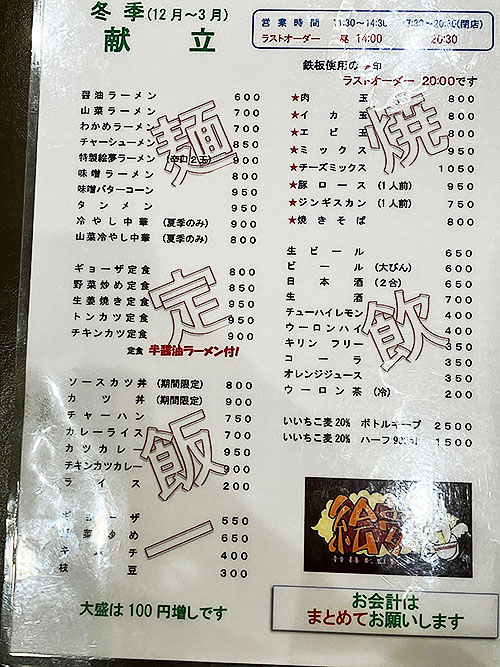 冬季(12月～3月)
献立
営業時間 11:30～14:30 17:30～20:30(閉店)
ラストオーダー 昼 14:00 20:30
鉄板使用の★印
ラストオーダー 20:00です
麺
醤油ラーメン 600
山菜ラーメン 700
わかめラーメン 700
チャーシューメン 850
特製絵夢ラーメン (辛口2玉) 900
味噌ラーメン 800
味噌バターコーン 950
タンメン 950
冷やし中華 (夏季のみ) 900
山菜冷やし中華 (夏季のみ) 800
定
ギョーザ定食 800
野菜炒め定食 850
生姜焼き定食 950
トンカツ定食 950
チキンカツ定食 900
定食 半醤油ラーメン付!
飯
ソースカツ丼 (期間限定) 800
カツ丼 (期間限定) 900
チャーハン 750
カレーライス 700
カツカレー 950
チキンカツカレー 900
ライス 200
一
ギョーザ 550
野菜炒め 650
キムチ 400
枝豆 300
大盛は100円増しです
焼
★肉玉 800
★イカ玉 800
★エビ玉 800
★ミックス 950
★チーズミックス 1050
★豚ロース (1人前) 950
★ジンギスカン (1人前) 750
★焼きそば 800
飲
生ビール 650
ビール (大びん) 600
日本酒 (2合) 650
生酒 700
チューハイレモン 400
ウーロンハイ 400
キリンフリー 350
コーラ 350
オレンジジュース 350
ウーロン茶 (冷) 200
いいちこ麦20% ボトルキープ 2500
いいちこ麦20% ハーフ 1500
絵夢
お会計は
まとめてお願いします